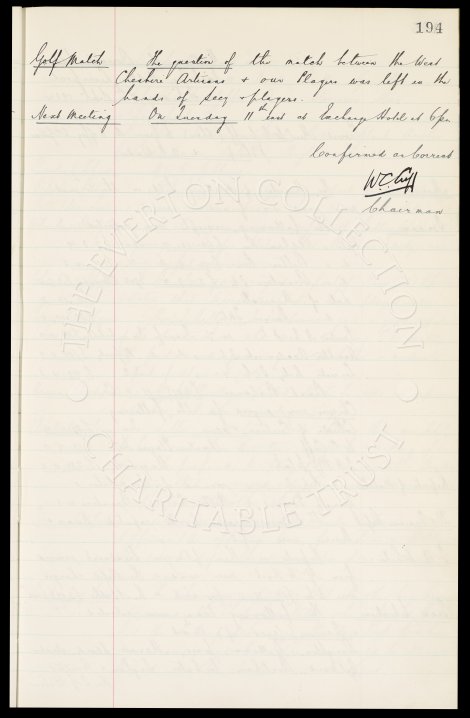 194
Golf Match The question of the match between the West
Cheshire Artisans & our Players was left in the
hands of Secy & players.
Next Meeting On Tuesday 11th inst at Exchange Hotel at 6pm
Confirmed as Correct
W.C. Cuff
Chairman
THE EVERTON COLLECTION
CHARITABLE TRUST